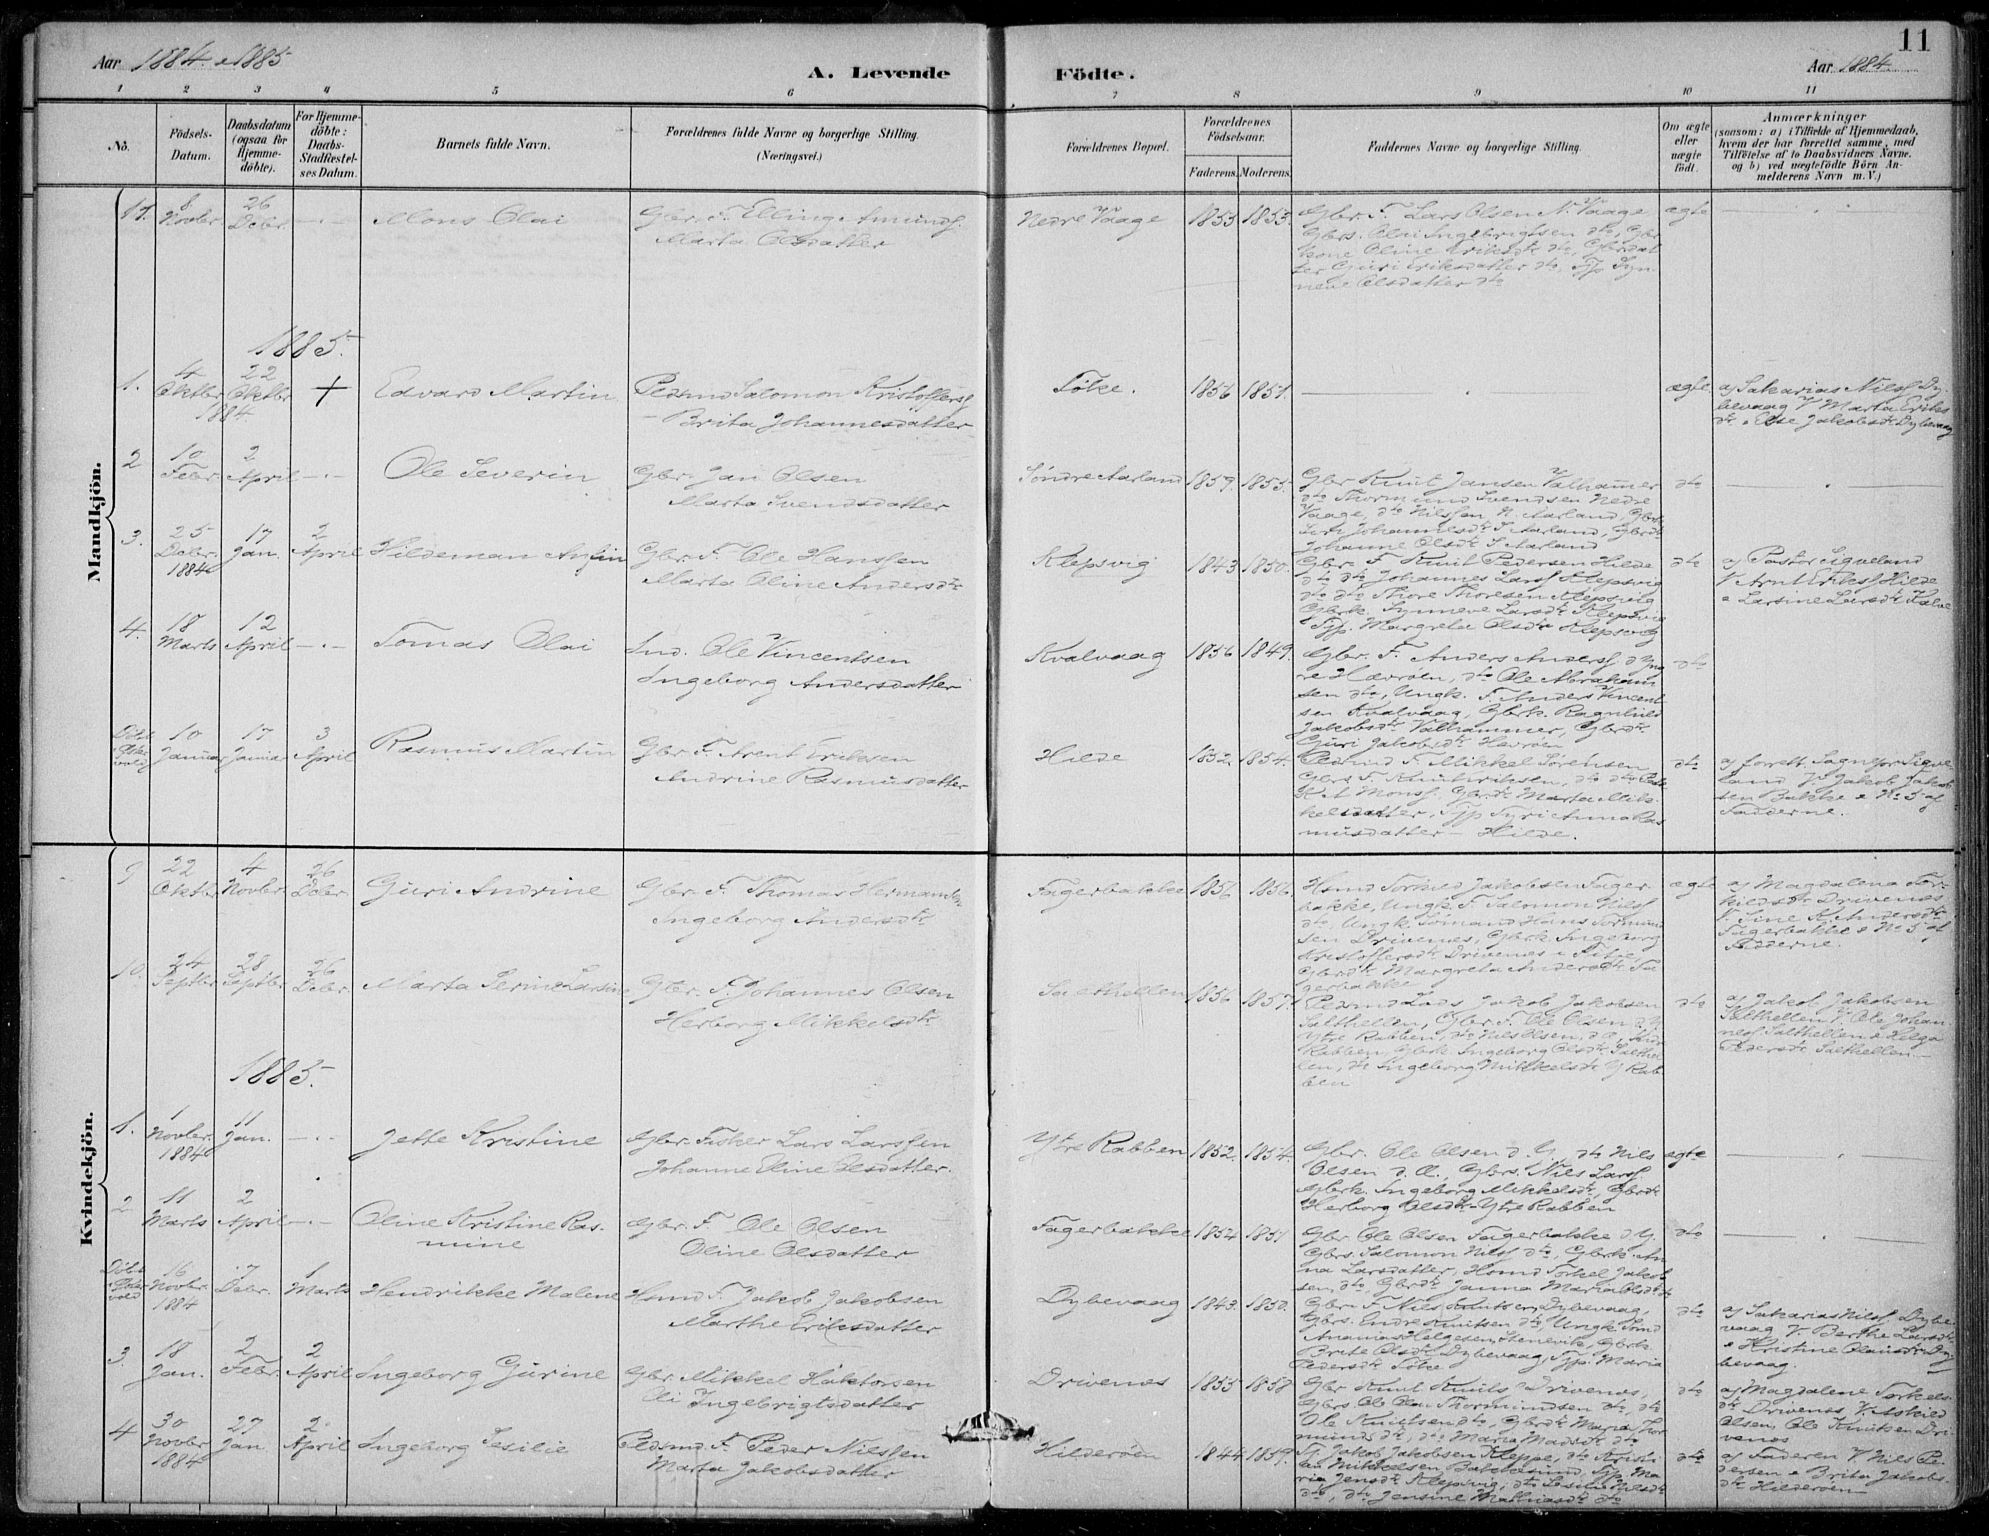 Aar 1884 & 1885
A. Levende
Födte.
Aar 1884
11
1 2 3 4 5 6 7 8 9 10 11
No.
Födsels-
Datum.
Daabsdatum
(ogsaa for
Hjemme-
döbte).
For Hjemme-
döbte:
Daabs-
Stadfæstel-
ses Datum.
Barnets fulde Navn.
Forældrenes fulde Navne og borgerlige Stilling.
(Næringsvei.)
Forældrenes Bopæl.
Forældrenes
Födselsaar.
Faderens. Moderens.
Faddernes Navne og borgerlige Stilling.
Om ægte
eller
uægte
födt.
Anmærkninger
(saasom: a) i Tilfælde af Hjemmedaab,
hvem der har forrettet samme, med
Tilföielse af to Daabsvidners Navne.
og b) ved uægtefödte Börn An-
melderens Navn m. V.)
Mandkjön.
8 Novbr. 26 Debr. Mons Olai
Gbr. F. Elling Amunds.
Marta Olsdatter
Nedre Vaage 1853 1855.
Gbr. F. Lars Olsen N. Vaage
Gbrs. Olai Ingebrigtsen dto, Gbr
kone Oline Eriksdtr dto, Gbrdat
ter Guri Eriksdatter dto, Tjp. Syn-
neve Olsdatter dto
ægte
1885.
1. 4 Oktbr 22 Oktbr 1884 + Edvard Martin
Pedsmd Salomon Kristoffers
Brita Johannesdatter
Föke. 1856 1851.
ægte
a) Sakarias Nils Dy-
bevaag V Marta Eriks
dtr. & Else Jakobsdtr Dybevaag
2 10 Febr. 2 April Ole Severin
Gbr. Jan Olsen
Marta Svendsdatter
Söndre Aarland 1859. 1855.
Gbr Knut Jansen Valhammer
dto Thormund Svendsen Nedre
Vaage, dto Nilssen N. Aarland, Gbrk.
Johannesdtr S Aarland, Gbrdtr
Johanne Olsdtr S Aarland
dto
3. 25 Debr. 1884 17 Jan. 2 April Hildeman Anfin
Gbr. F. Ole Hanssen
Marta Oline Andersdtr
Klepsvig 1843 1850.
Gbr. F. Knut Pedersen Hilde
dto dto Johannes Lars Klepsvig
dto dto Thore Thoresen Klepsvig
Gbrk. Synneve Larsdtr Klepsvig
Tjp. Margreta Olsdtr Klepsvig
dto
a) Pastor Sigveland
V Arnt Eriks Hilde
& Larsine Larsdtr Kalve
4. 18 Marts 12 April Tomas Olai
Ind. Ole Vincentsen
Ingeborg Andersdatter
Kvalvaag 1856 1849.
Gbr. F. Anders Anders d Yng
re Hævröen, dto Ole Abraham
sen dto, Ungk. F. Anders Vincent
sen Kvalvaag, Gbrk. Ragnhild
Jakobsdtr Valhammer, Gbrdtr
Guri Jakobsdtr Hævröen
dto
10 Januar 17 Januar 3 April Rasmus Martin
Gbr. F. Arent Eriksen
Andrine Rasmusdatter
Hilde 1852. 1854.
Pedsmd F. Mikkel Sörensen
Gbrs F. Knut Eriksen, dto dto
Mons. Gbrdtr Marta Mik-
kelsdatter, Tjp Syri Anna Ras
musdatter - Hilde.
dto
a) forrett. Sognepr Sigve
land V. Jakob Jakob
sen Bakke & No 5 af
Fadderne.
Kvindekjön.
9 22 Oktbr 4 Novbr. 26 Debr Guri Andrine
Gbr. F. Thomas Hermans
Ingeborg Andersdtr
Fagerbakke 1856 1856.
Hsmd Torkild Jakobsen Fager-
bakke, Ungk. F Salomon Nils
dto, Ungk. Sömand Hans Tormun
sen Drivenes, Gbrk. Ingeborg
Kristoffersdtr Drivenes i Fitje
Gbrdtr Margreta Andersdtr Fa
gerbakke
ægte
a) Magdalena Tor-
kildsdtr Drivenes
V. Sine K. Andersdtr
Fagerbakke & No 5 af
Fadderne.
10. 24 Septbr 28 Septbr 26 Debr. Marta Serine Larsine
Gbr. F. Johannes Olsen
Herborg Mikkelsdtr
Salthellen 1856 1857.
Pedsmd Lods Jakob Jakobsen
Salthellen, Gbr. F. Ole Olsen d Y.
Ytre Rabben, dto Nils Olsen, d Æ,
Rabben, Gbrk Ingeborg Olsdtr Salthe
len, dtr Ingeborg Mikkelsdtr Y Rab-
ben
dto
a) Jakob Jakobsen
Salthellen V Ole Johan-
nes Salthellen & Helga
Pedersdtr Salthellen
1885.
1. 1 Novbr. 1884 11 Jan. Jette Kristine
Gbr. Fisker Lars Larssen
Johanne Oline Olsdatter.
Ytre Rabben 1852. 1854.
Gbr. Ole Olsen d Y. dto Nils
Olsen d Æ., Gbrs. Nils Lars
Gbrk. Ingeborg Mikkelsdtr, Gbrdtr
Herborg Olsdtr - Ytre Rabben
ægte
2 11 Marts 2 April Oline Kristine Ras-
mine
Gbr. F. Ole Olsen
Oline Olsdatter
Fagerbakke 1854 1851
Gbr Ole Olsen Fagerbakke d Y.
Gbrs. Salomon Nils dto, Gbrk. An
na Larsdatter, Hsmd Torkel Jakob
sen dto, Gbrdtr Janna Maria Olsdtr
dto
16 Novbr. 1884 7 Debr. 1 Marts Hendrikke Malene
Hsmd F. Jakob Jakobsen
Marthe Eriksdatter
Dybevaag 1843. 1850.
Gbr. F. Nils Knutsen Dybevaag,
Gbrs. Endre Knutsen dto Ungk Sömd
Ananias Helgesen Stenevik, Gbrk.
Brite Olsdtr Dybevaag, Tjp. Maria
Pedersdtr Föke
dto
a) Sakarias Nils Dybe
vaag V. Berthe Larsdtr
& Kristine Olausdtr Dy
bevaag.
3. 18 Jan. 2 Febr. 2 April Ingeborg Gurine
Gbr Mikkel Haktorsen
Oli Ingebrigtsdatter
Drivenes 1855 1858
Gbr Knut Knuts Drivenes,
Gbrs Ole Olai Thormundsen dto, dto
Ole Knutsen dto, Gbrdtr Maria Thor
munds dtr, dto Maria Madsdtr dto
dto
a) Magdalene Torkels-
dtr Drivenes V. Askild
Olsen, Ole Knutsen Dri-
venes
4 30 Novbr 1884 27 Jan. 2 April Ingeborg Sesilie
Pedsmd F. Peder Nilssen
Marta Jakobsdatter
Hilderöen 1844 1859.
Jakob Jakobsen Kleppe, dto Kristi
an Mikkelsen Bakkesund, Tjp. Ma
ria Jensdtr Klepsvig, dto Nilsdtr
dto, dto Jensine Mathiasdtr dto
dto
a) Faderen V Nils Pe-
dersen & Brita Jakobs-
dtr Hilderöen